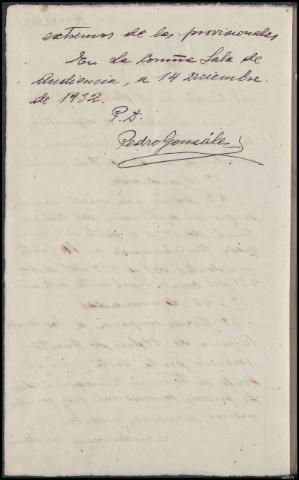 extremos de las provisionales
En La Coruña Sala de
Audiencia, a 14 Diciembre
de 1932.
P. D.
Pedro González